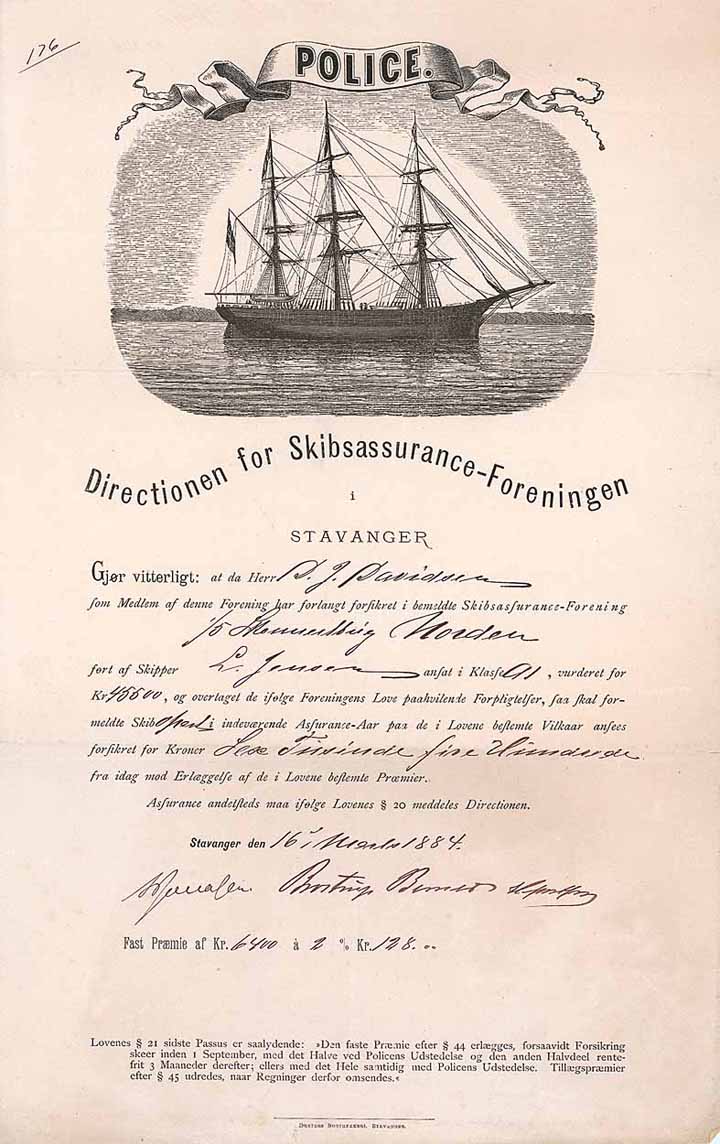 176
POLICE.
Directionen for Skibsassurance-Foreningen
i
STAVANGER
Gjør vitterligt: at da Herr D. J. Davidsen
som Medlem af denne Forening har forlangt forsikret i bemeldte Skibsassurance-Forening
Norden
ført af Skipper L. Jensen ansat i Klasse A1, vurderet for
Kr 45500, og overtaget de ifølge Foreningens Love paahvilende Forpligtelser, saa skal for-
meldte Skib i indeværende Assurance-Aar paa de i Lovene bestemte Vilkaar ansees
forsikret for Kroner Sex Tusinde fire Hundrede
fra idag mod Erlæggelse af de i Lovene bestemte Præmier.
Assurance andetsteds maa ifølge Lovenes § 20 meddeles Directionen.
Stavanger den 16' Marts 1884.
Fast Præmie af Kr. 6400 à 2 % Kr. 128. "
Lovenes § 21 sidste Passus er saalydende: »Den faste Præmie efter § 44 erlægges, forsaavidt Forsikring
skeer inden 1 September, med det Halve ved Policens Udstedelse og den anden Halvdeel rente-
frit 3 Maaneder derefter; ellers med det Hele samtidig med Policens Udstedelse. Tillægspræmier
efter § 45 udredes, naar Regninger derfor omsendes.«
STAVANGER.